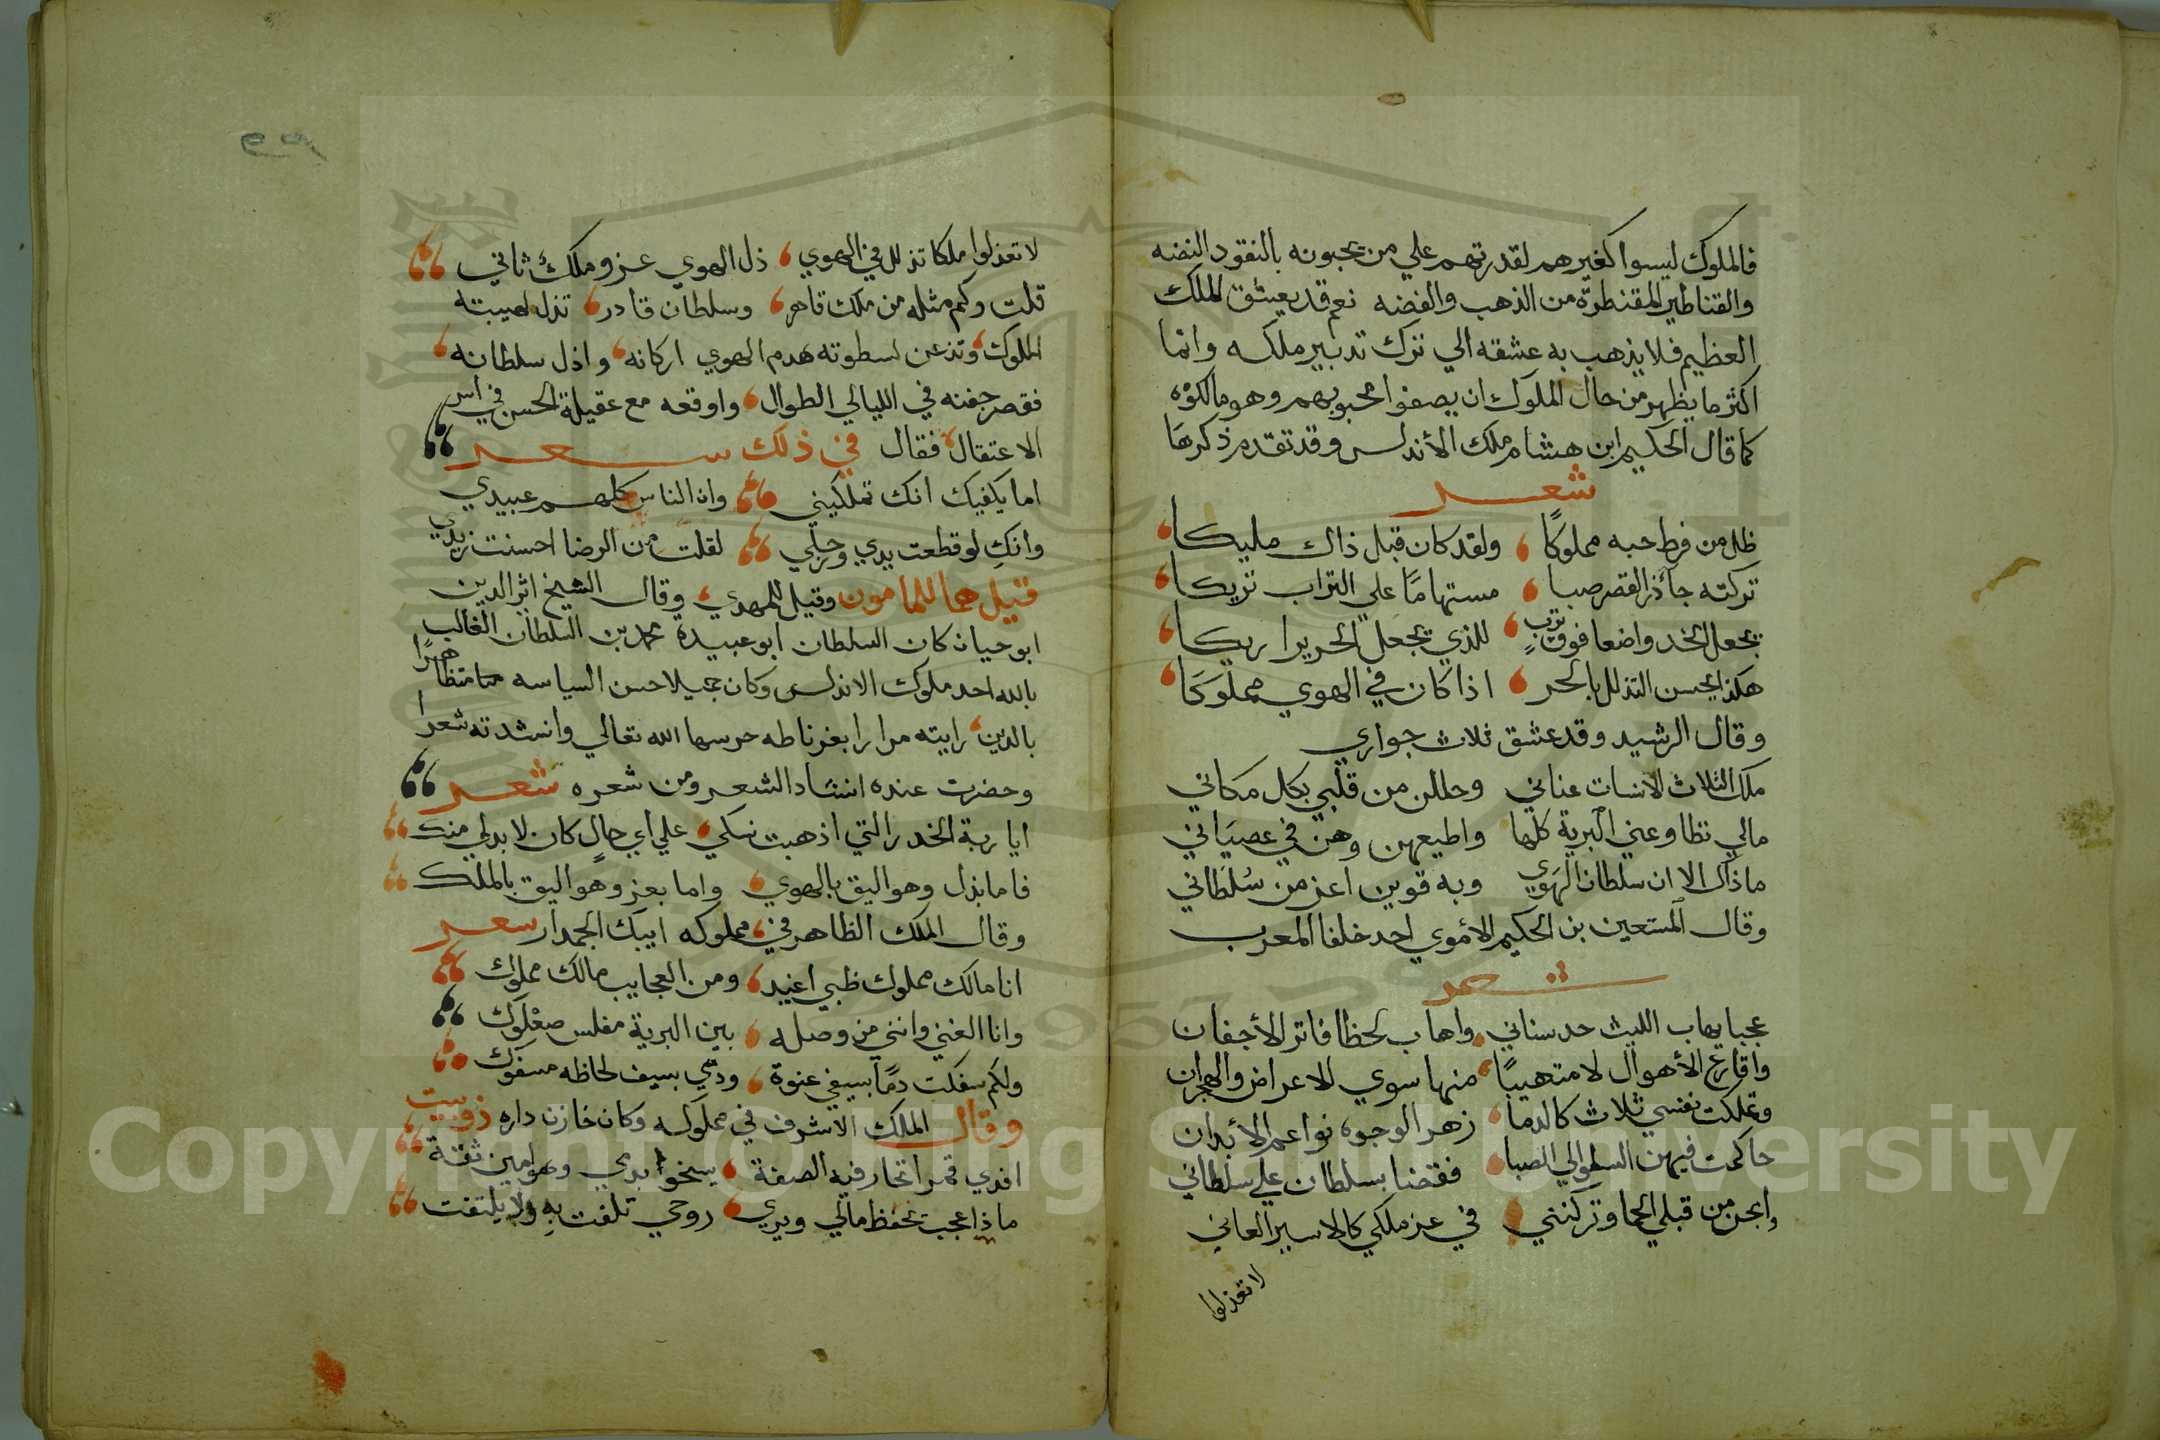 فالملوك ليسوا كغيرهم لقدرتهم علي من يحبونه بالنقود النضه
والقناطير المقنطرة من الذهب والفضه نعم قد يعشق الملك
العظيم فلا يذهب به عشقه الي ترك تدبير ملكه وانما
اكثر ما يظهر من حال الملوك ان يصفوا محبوبهم وهو مالكوه
كما قال الحكيم ابن هشام ملك الأندلس وقد تقدم ذكرها
شعر
ظل من فرط حبه مملوكًا ولقد كان قبل ذاك مليكا
تركته جآذر القصر صبا مستهامًا علي التراب تريكا
يجعل الخد واضعا فوق ترب للذي يجعل الحرير اريكا
هكذا يحسن التذلل بالحر اذا كان في الهوي مملوكا
وقال الرشيد وقد عشق ثلاث جواري
ملك الثلاث الانسات عناني وحللن من قلبي بكل مكاني
مالي تطاوعني البرية كلها واطيعهن وهن في عصياني
ماذاك الا ان سلطان الهوي وبه قوين اعز من سلطاني
وقال المستعين بن الحكيم الأموي احد خلفا المغرب
شعر
عجبا يهاب الليث حد سناني واهاب لحظا فاتر الأجفان
واقارع الأهوال لا متهيبًا منها سوي للاعراض والهجران
وتملكت نفسي ثلاث كالدما زهر الوجوه نواعم الأبدان
حاكمت فيهن السلو الي الصبا فقضا بسلطان علي سلطاني
وابحن من قبلي الحما وتركنني في عز ملكي كالاسير العاني
لا تعذلوا
٣٩
لا تعذلوا ملكا تذلل في الهوي ذل الهوي عز وملك ثاني
قلت وكم مثله من ملك قاهر وسلطان قادر تذل لهيبته
الملوك وتذعن لسطوته هدم الهوي اركانه واذل سلطانه
فقصر جفنه في الليالي الطوال واوقعه مع عقيلة الحسن في اسر
الاعتقال فقال في ذلك سعر
اما يكفيك انك تملكيني وان الناس كلهم عبيدي
وانكِ لو قطعت يدي ورجلي لقلت من الرضا احسنت زيدي
قيل هما للمامون وقيل للمهدي وقال الشيخ اثر الدين
ابو حيان كان السلطان ابو عبيدة محمد بن السلطان الغالب
بالله احد ملوك الاندلس وكان جميلا حسن السياسه متظاهرًا
بالدين رايته مرارا بغرناطه حرسها الله تعالي وانشدته شعرا
وحضرت عنده انشاد الشعر ومن شعره شعر
ايا ربة الخدر التي اذهبت نسكي علي اي حالٍ كان لا بد لي منك
فاما بذل وهو اليق بالهوي واما بعز وهو اليق بالملك
وقال الملك الظاهر في مملوكه ايبك الجمدار سعر
انا مالك مملوك ظبي اغيد ومن العجايب مالك مملوك
وانا الغني وانني من وصله بين البرية مفلس صعلوك
ولكم سفكت دمًا بسيفي عنوة ودمي بسيف لحاظه مسفوك
وقال الملك الاشرف في مملوكه وكان خازن داره ذوبيت
افدي قمرا تحار فيه الصفة يسخوا بدمي وهو امين ثقة
ماذا عجبت يحفظ مالي ويري روحي تلفت به ولا يلتفت
Copyright © King Saud University